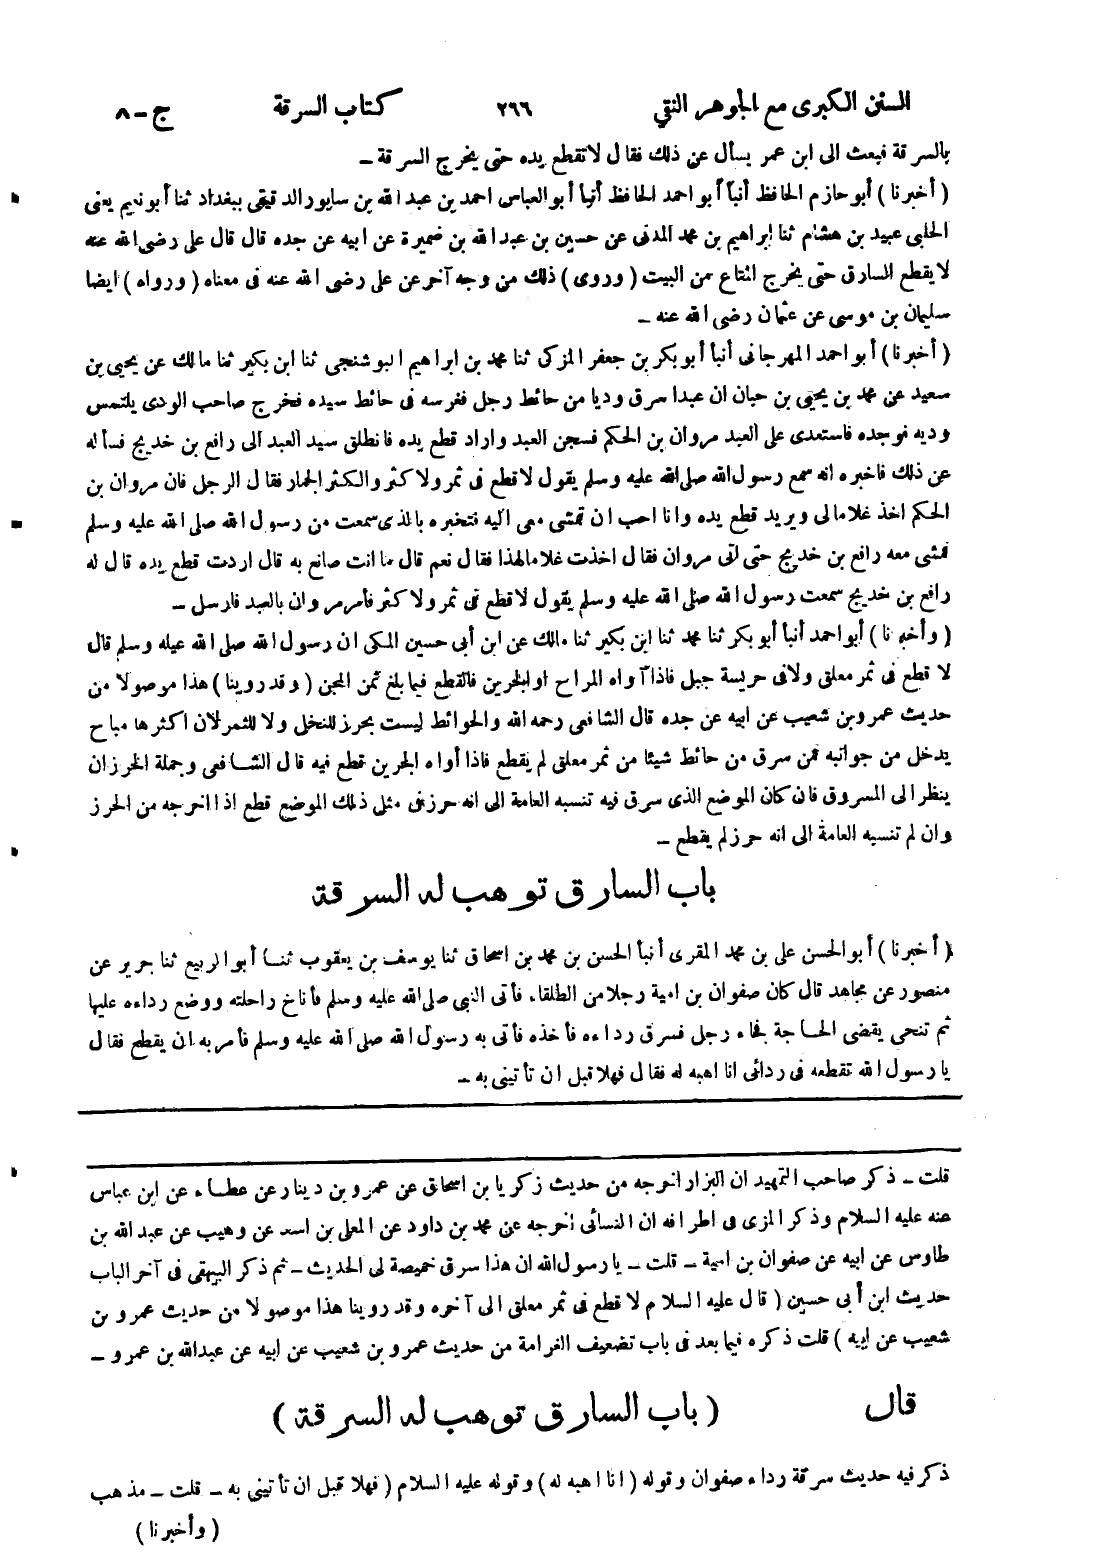 السنن الكبرى مع الجوهر النقي ٢٦٦ كتاب السرقة ج-٨
بالسرقة فبعث الى ابن عمر يسأل عن ذلك فقال لا تقطع يده حتى يخرج السرقة -
( أخبرنا ) أبو حازم الحافظ أنبأ أبو احمد الحافظ أنبأ أبو العباس احمد بن عبد الله بن سابور الدقيقى ببغداد ثنا أبو نعيم يعنى
الحلبى عبيد بن هشام ثنا ابراهيم بن محمد المدنى عن حسين بن عبد الله بن ضميرة عن ابيه عن جده قال قال على رضى الله عنه
لا يقطع السارق حتى يخرج المتاع من البيت ( وروى ) ذلك من وجه آخر عن على رضى الله عنه فى معناه ( ورواه ) ايضا
سليمان بن موسى عن عثمان رضى الله عنه -
( أخبرنا ) أبو احمد المهرجانى أنبأ أبو بكر بن جعفر المزكى ثنا محمد بن ابراهيم البوشنجى ثنا ابن بكير ثنا مالك عن يحيى بن
سعيد عن محمد بن يحيى بن حبان ان عبدا سرق وديا من حائط رجل فغرسه فى حائط سيده فخرج صاحب الودى يلتمس
وديه فوجده فاستعدى على العبد مروان بن الحكم فسجن العبد واراد قطع يده فانطلق سيد العبد الى رافع بن خديج فسأله
عن ذلك فاخبره انه سمع رسول الله صلى الله عليه وسلم يقول لا قطع فى ثمر ولا كثر والكثر الجمار فقال الرجل فان مروان بن
الحكم اخذ غلاما لى ويريد قطع يده وانا احب ان تمشى معى اليه فتخبره بالذى سمعت من رسول الله صلى الله عليه وسلم
فمشى معه رافع بن خديج حتى لقى مروان فقال اخذت غلاما لهذا فقال نعم قال ما انت صانع به قال اردت قطع يده قال له
رافع بن خديج سمعت رسول الله صلى الله عليه وسلم يقول لا قطع فى ثمر ولا كثر فأمر مروان بالعبد فارسل -
( وأخبرنا ) أبو احمد أنبأ أبو بكر ثنا محمد ثنا ابن بكير ثنا مالك عن ابن أبى حسين المكى ان رسول الله صلى الله عيله وسلم قال
لا قطع فى ثمر معلق ولا فى حريسة جبل فاذا آواه المراح او الجرين فالقطع فيما بلغ ثمن المجن ( وقد روينا ) هذا موصولا من
حديث عمرو بن شعيب عن ابيه عن جده قال الشافعى رحمه الله والحوائط ليست بحرز للنخل ولا للثمر لان اكثرها مباح
يدخل من جوانبه فمن سرق من حائط شيئا من ثمر معلق لم يقطع فاذا أواه الجرين قطع فيه قال الشافعى وجملة الحرز ان
ينظر الى المسروق فان كان الموضع الذى سرق فيه تنسبه العامة الى انه حرز فى مثل ذلك الموضع قطع اذا اخرجه من الحرز
وان لم تنسبه العامة الى انه حرز لم يقطع -
باب السارق توهب له السرقة
( أخبرنا ) أبو الحسن على بن محمد المقرى أنبأ الحسن بن محمد بن اسحاق ثنا يوسف بن يعقوب ثنا أبو الربيع ثنا جرير عن
منصور عن مجاهد قال كان صفوان بن امية رجلا من الطلقاء فأتى النبى صلى الله عليه وسلم فأناخ راحلته ووضع رداءه عليها
ثم تنحى يقضى الحاجة فجاء رجل فسرق رداءه فأخذه فأتى به رسول الله صلى الله عليه وسلم فأمر به ان يقطع فقال
يا رسول الله تقطعه فى ردائى انا اهبه له فقال فهلا قبل ان تأتينى به -
قلت - ذكر صاحب التمهيد ان البزار اخرجه من حديث زكريا بن اسحاق عن عمرو بن دينار عن عطاء عن ابن عباس
عنه عليه السلام وذكر المزى فى اطرافه ان النسائى أخرجه عن محمد بن داود عن المعلى بن اسد عن وهيب عن عبد الله بن
طاوس عن ابيه عن صفوان بن امية - قلت - يا رسول الله ان هذا سرق خميصة لى الحديث - ثم ذكر البيهقى فى آخر الباب
حديث ابن أبى حسين ( قال عليه السلام لا قطع فى ثمر معلق الى آخره وقد روينا هذا موصولا من حديث عمرو بن
شعيب عن ابيه ) قلت ذكره فيما بعد فى باب تضعيف الغرامة من حديث عمرو بن شعيب عن ابيه عن عبد الله بن عمرو -
قال ( باب السارق توهب له السرقة )
ذكر فيه حديث سرقة رداء صفوان وقوله ( انا اهبه له ) وقوله عليه السلام ( فهلا قبل ان تأتينى به - قلت - مذهب
( وأخبرنا )